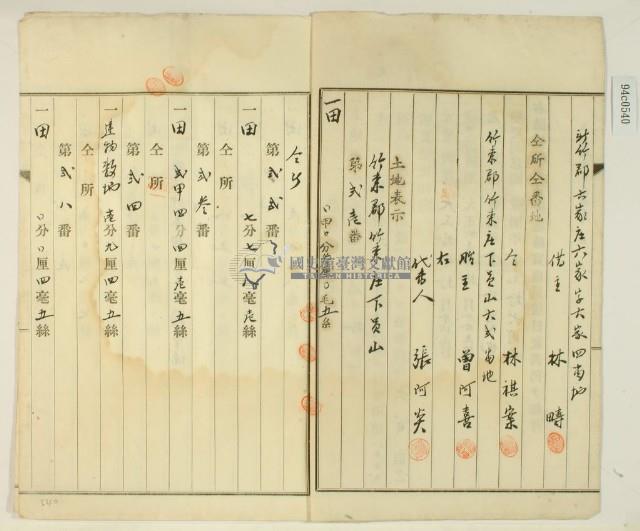 新竹郡六家庄六家字六家四番地
借主 林疇
仝所仝番地
仝 林祺案
竹東郡竹東庄下員山六弍番地
賍主 曽阿喜
右
代書人 張阿炎
土地表示
竹東郡竹東庄下員山
第弍壱番
一田
仝所
第弍弍番
一田 七分七厘
仝所
第弍叁番
一田 弍甲四分四厘壱毫五絲
仝所
第弍四番
一建物敷地 壱分九厘四毫五絲
仝所
第弍八番
一田 〇分〇厘四毫五絲
94c0540
國史館臺灣文獻館
TAIWAN HISTORICA